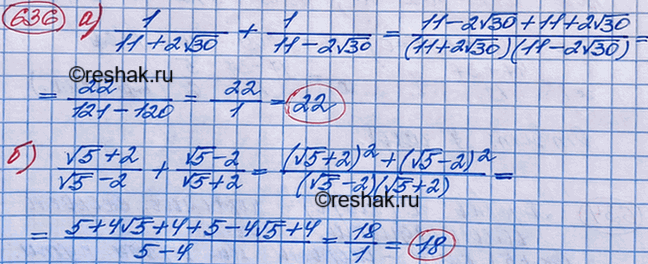 636 а) 1/(11+2√30) + 1/(11-2√30) = (11-2√30+11+2√30)/((11+2√30)(11-2√30)) =
©reshak.ru
= 22/(121-120) = 22/1 = 22
б) (√5+2)/(√5-2) + (√5-2)/(√5+2) = ((√5+2)²+(√5-2)²)/((√5-2)(√5+2)) =
©reshak.ru
= (5+4√5+4+5-4√5+4)/(5-4) = 18/1 = 18